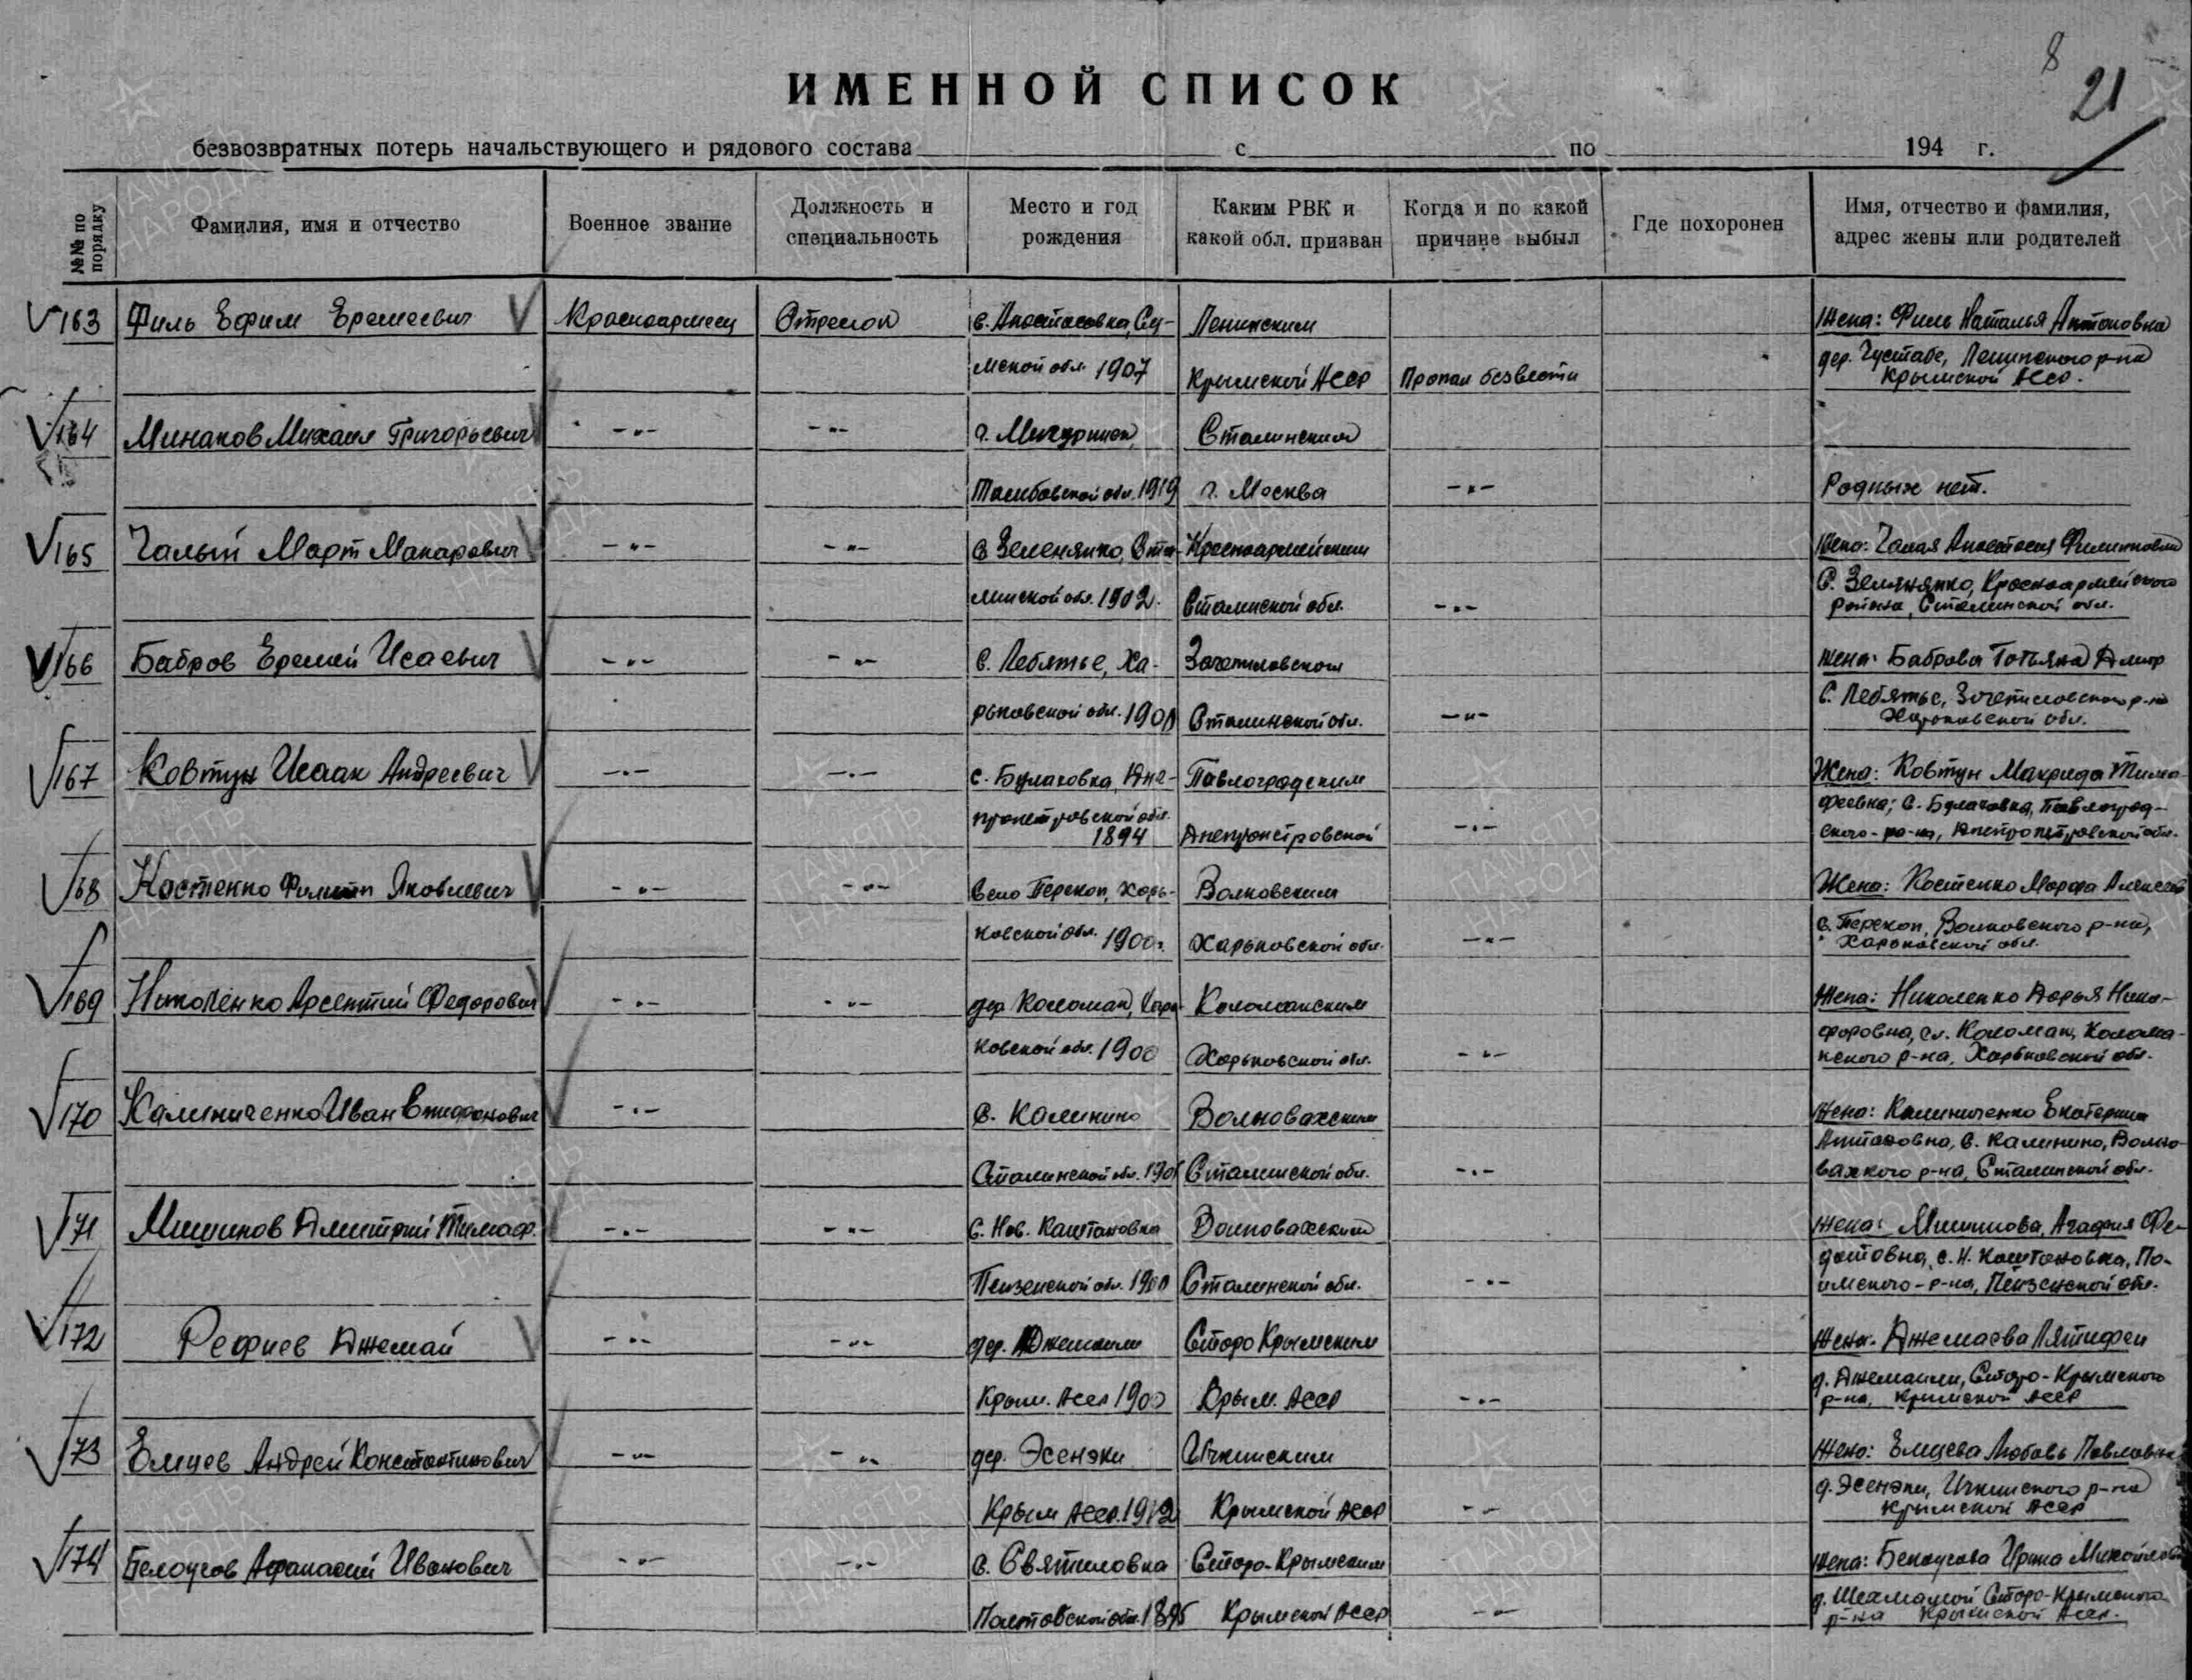 8
21
ИМЕННОЙ СПИСОК
безвозвратных потерь начальствующего и рядового состава с по 194 г.
№№ по порядку
Фамилия, имя и отчество
Военное звание
Должность и специальность
Место и год рождения
Каким РВК и какой обл. призван
Когда и по какой причине выбыл
Где похоронен
Имя, отчество и фамилия, адрес жены или родителей
163 Филь Ефим Еремеевич Красноармеец Стрелок с. Анастасовка, Су- Ленинским Жена: Филь Наталья Антоновна
мской обл. 1907 Крымской АССР Пропал безвести дер. Чустабе, Ленинского р-на
Крымской АССР.
164 Минаков Михаил Григорьевич -"- -"- г. Мичуринск, Сталинским
Тамбовской обл. 1919 г. Москва -"- Родных нет.
165 Чалый Март Макарович -"- -"- с. Зеленянко, Ста- Красноармейским Жена: Чалая Анастасия Филипповна
линской обл. 1902. Сталинской обл. -"- с. Землянянко, Красноармейского
района, Сталинской обл.
166 Бабров Еремей Исаевич -"- -"- с. Лебяжье, Ха- Зачепиловском Жена: Баброва Татьяна Дмитр
рьковской обл. Сталинской обл. -"- с. Лебяжье, Зачепиловского р-на
Харьковской обл.
167 Ковтун Исаак Андреевич -"- -"- с. Булаховка, Дне- Павлоградским Жена: Ковтун Макрида Тимо-
пропетровской обл. феевна; с. Булаховка, Павлоград-
1894 Днепропетровской -"- ского р-на, Днепропетровской обл.
168 Костенко Филипп Яковлевич -"- -"- село Перекоп, Харь- Валковским Жена: Костенко Марфа Алексеев
ковской обл. 1900г. Харьковской обл. -"- с. Перекоп, Валковского р-на,
Харьковской обл.
169 Николенко Арсентий Федорович -"- -"- дер. Коломак, Харь- Коломакским Жена: Николенко Дарья Ники-
ковской обл. 1900 Харьковской обл. -"- форовна, сл. Коломак, Колома-
кского р-на, Харьковской обл.
170 Калиниченко Иван -"- с. Калинино Волновахским Жена: Калиниченко Екатерина
с. Калинино, Волно-
Сталинской обл. Сталинской обл. -"- вахкого р-на, Сталинской обл.
171 Мишинов Дмитрий Тимоф. -"- -"- с. Нов. Каштановка Волновахским Жена: Мишинова, Агафия Фе-
дотовна, с. Н. Каштановка, По-
Пензенской обл. 1900 Сталинской обл. -"- имского-р-на, Пензенской обл.
172 Рефиев Джемай -"- -"- дер. Старо Крымским Жена. Джемаева Лятифеи
Крым. АССР 1900 Крым. АССР -"- д. Джемаили, Старо-Крымского
р-на, Крымской АССР
173 Елцев Андрей Константинович -"- -"- дер. Эсенэки Ичкинским Жена: Елцева Любовь Павловна
Крым АССР. 1912 Крымской АССР -"- д. Эсенэки, Ичкинского р-на
Крымской АССР
174 Белоусов Афанасий Иванович -"- -"- с. Святиловка Старо-Крымским Жена: Белоусова Ирина Михайловн
Полтавской обл. 1895 Крымской АССР -"- д. Старо-Крымского
р-на Крымской АССР.